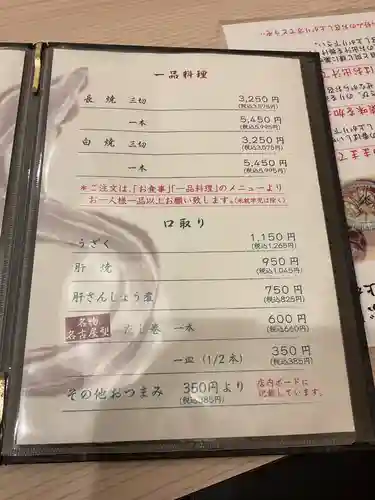 一品料理
長焼 三切 3,250円
(税込3,575円)
一本 5,450円
(税込5,995円)
白焼 三切 3,250円
(税込3,575円)
一本 5,450円
(税込5,995円)
*ご注文は、「お食事」「一品料理」のメニューより
お一人様一品以上お願い致します。(未就学児は除く)
口取り
うざく 1,150円
(税込1,265円)
肝焼 950円
(税込1,045円)
肝さんしょう煮 750円
(税込825円)
名物
名古屋型 だし巻 一本 600円
(税込660円)
一皿(1/2本) 350円
(税込385円)
その他おつまみ 350円より
(税込385円)
店内ボードに
記載しています。